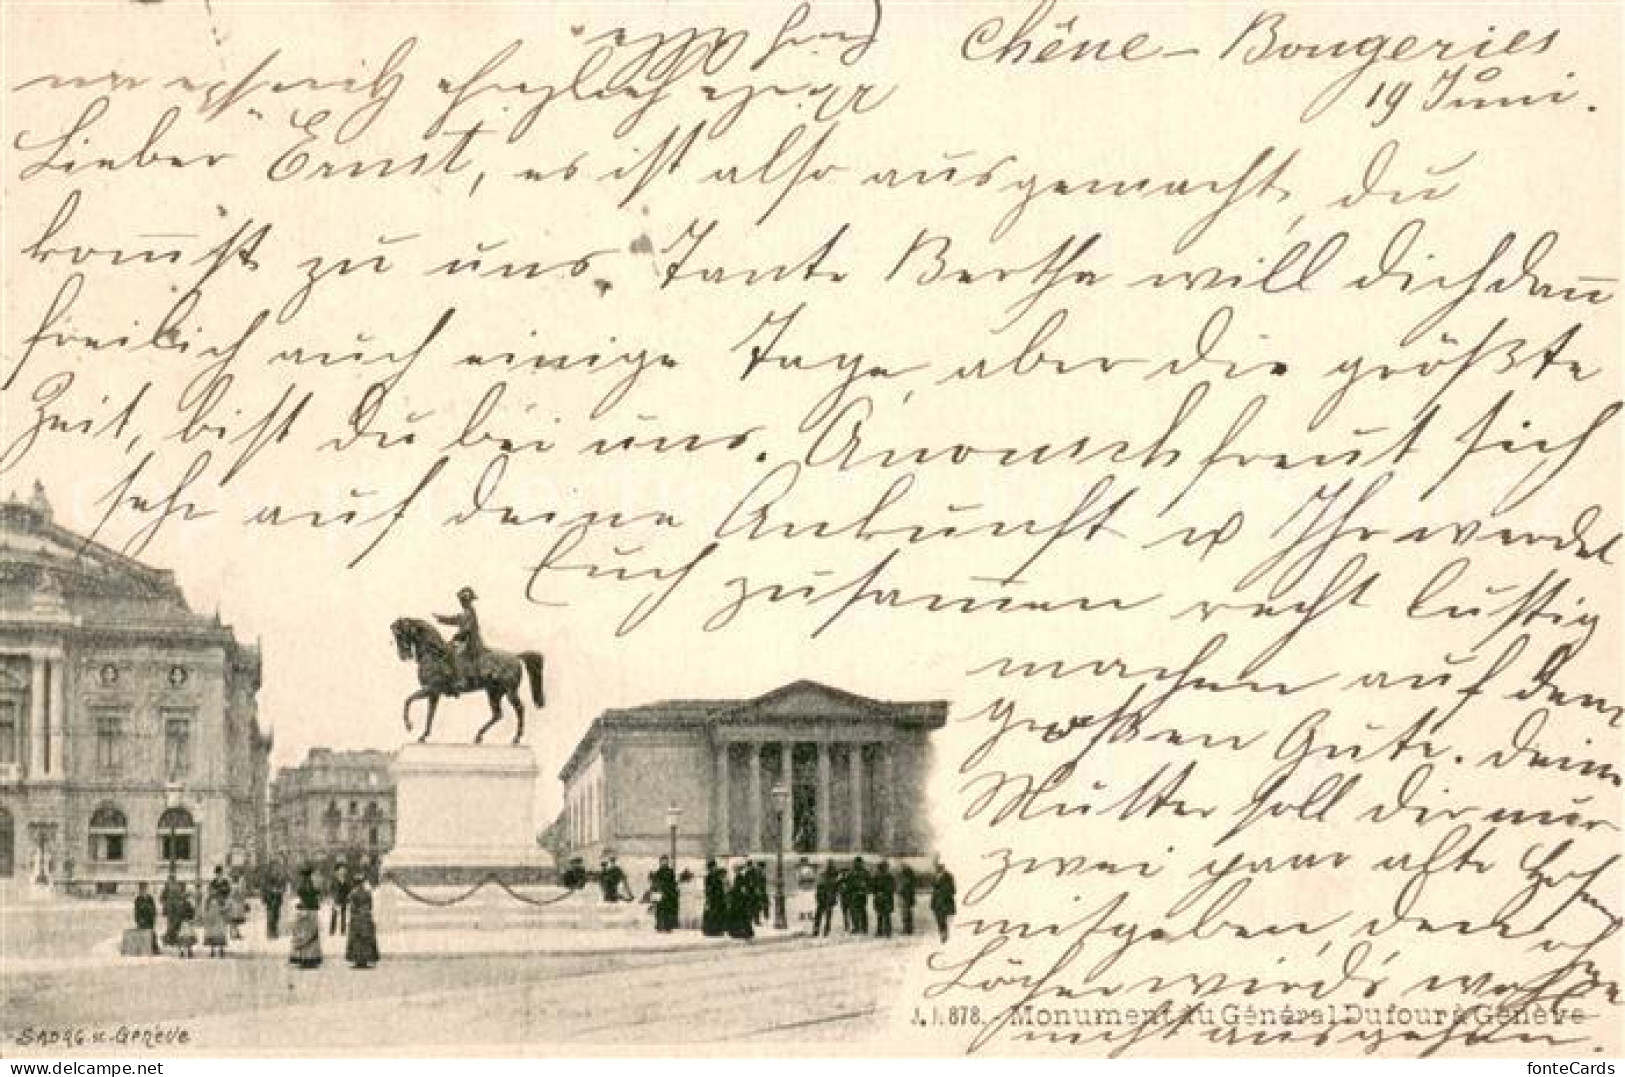 Chêne-Bougeries
19 Juni.
Lieber Ernst, es ist also ausgemacht, du
kom̅st zu uns. Tante Bertha will dich dan̅
freilich auch einige Tage, aber die größte
Zeit, bist du bei uns. freut sich
sehr auf deine Ankunft u Ihr werdet
Euch zusam̅en recht lustig
machen auf dem
großen Gute. Deine
Mutter soll dir nur
zwei paar alte Hosen
mitgeben, denn oh
Löcher wird's wohl
nicht ausgehen.
herzlich
J.J. 878. - Monument du Général Dufour à Genève
SADAG u. GENEVE
fonteCards